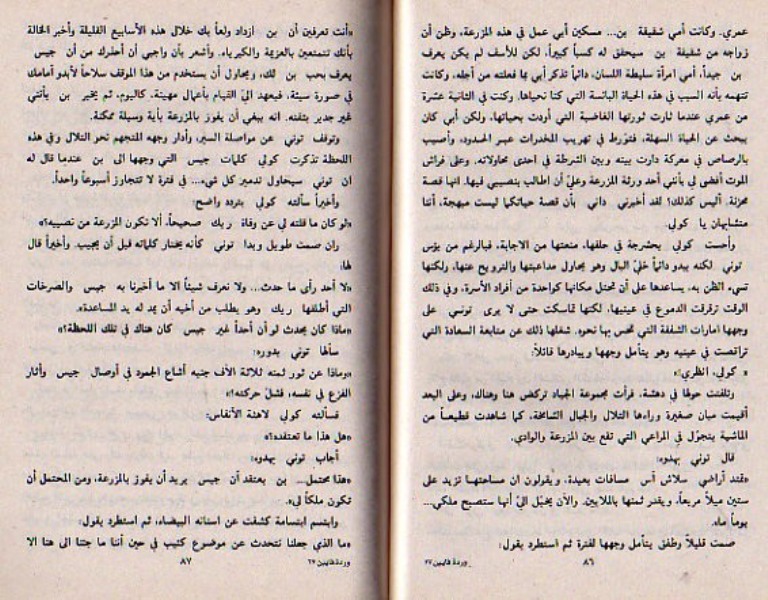 عمري. وكانت أمي شقيقة بن... مسكين أبي عمل في هذه المزرعة، وظن أن
زواجه من شقيقة بن سيحقق له كسباً كبيراً، لكن للأسف لم يكن يعرف
بن جيداً. أمي امرأة سليطة اللسان، دائماً تذكر أبي بما فعلته من أجله، وكانت
تتهمه بأنه السبب في هذه الحياة البائسة التي كنا نحياها. وكنت في الثانية عشرة
من عمري عندما ثارت ثورتها الغاضبة التي أودت بحياتها. ولكن أبي كان
يبحث عن الحياة السهلة، فتورط في تهريب المخدرات عبر الحدود، وأصيب
بالرصاص في معركة دارت بينه وبين الشرطة في احدى محاولاته. وعلى فراش
الموت أفضى لي بأنني أحد ورثة المزرعة وعليّ أن اطالب بنصيبي فيها. انها قصة
محزنة، أليس كذلك؟ لقد أخبرني داني بأن قصة حياتكما ليست مبهجة، أننا
متشابهان يا كولي.
وأحست كولي بحشرجة في حلقها، منعتها من الاجابة، فبالرغم من بؤس
توني لكنه يبدو دائماً خليّ البال وهو يحاول مداعبتها والترويح عنها، ولكنها
تسيء الظن به. يساعدها على أن تحتل مكانها كواحدة من أفراد الأسرة. وفي ذلك
الوقت ترقرقت الدموع في عينيها، لكنها تماسكت حتى لا يرى توني على
وجهها امارات الشفقة التي تحس بها نحوه. شغلها ذلك عن متابعة السعادة التي
تراقصت في عينيه وهو يتأمل وجهها ويبادرها قائلاً:
« كولي، انظري!»
وتلفتت حولها في دهشة، فرأت مجموعة الجياد تركض هنا وهناك، وعلى البعد
أقيمت مبان صغيرة وراءها التلال والجبال الشامخة، كما شاهدت قطيعاً من
الماشية يتجوّل في المراعي التي تقع بين المزرعة والوادي.
قال توني بهدوء:
«تمتد أراضي سلاش أس مسافات بعيدة، ويقولون ان مساحتها تزيد على
ستين ميلاً مربعاً، ويقدر ثمنها بالملايين. والآن يخيّل اليّ أنها ستصبح ملكي...
يوماً ما»
صمت قليلاً وطفق يتأمل وجهها لفترة ثم استطرد يقول:
٨٦ وردة قايين ٢٧
«أنت تعرفين أن بن ازداد ولعاً بك خلال هذه الأسابيع القليلة وأخبر الخالة
بأنك تتمتعين بالعزيمة والكبرياء. وأشعر بأن واجبي أن أحذرك من أن جيس
يعرف بحب بن لك، ويحاول أن يستخدم من هذا الموقف سلاحاً لأبدو أمامك
في صورة سيئة، فيعهد اليّ القيام بأعمال مهينة، كاليوم، ثم يخبر بن بأنني
غير جدير بثقته. انه يبغي أن يفوز بالمزرعة بأية وسيلة ممكنة.
وتوقف توني عن مواصلة السير، وأدار وجهه المتجهم نحو التلال وفي هذه
اللحظة تذكرت كولي كلمات جيس التي وجهها الى بن عندما قال له
ان توني سيحاول تدمير كل شيء... في فترة لا تتجاوز أسبوعاً واحداً.
وأخيراً سألته كولي بتردد واضح:
«لو كان ما قلته لي عن وفاة ريك صحيحاً، ألا تكون المزرعة من نصيبه؟»
ران صمت طويل وبدا توني كأنه يختار كلماته قبل أن يجيب. وأخيراً قال
لها:
«لا أحد رأى ما حدث... ولا نعرف شيئاً الا ما أخبرنا به جيس والصرخات
التي أطلقها ريك وهو يطلب من أخيه أن يمد له يد المساعدة»
«ماذا كان يحدث لو أن أحداً غير جيس كان هناك في تلك اللحظة؟»
سألها توني بدوره:
«وماذا عن ثور ثمنه ثلاثة الآف جنيه أشاع الجمود في أوصال جيس وأثار
الفزع في نفسه، فشلّ حركته؟»
فسألته كولي لاهثة الأنفاس:
«هل هذا ما تعتقده؟»
أجاب توني بهدوء:
«هذا محتمل... بن يعتقد أن جيس يريد أن يفوز بالمزرعة، ومن المحتمل أن
تكون ملكاً لي»
وابتسم ابتسامة كشفت عن اسنانه البيضاء، ثم استطرد يقول:
«ما الذي جعلنا نتحدث عن موضوع كئيب في حين أننا ما جئنا الى هنا الا
وردة قايين ٢٧ ٨٧